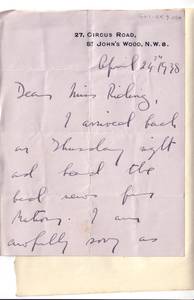 27, CIRCUS ROAD,
ST JOHN'S WOOD, N.W. 8.
April 24th 1938
Dear Miss Riding,
I arrived back
on Thursday night
and heard the
bad news from
Matron. I am
awfully sorry as